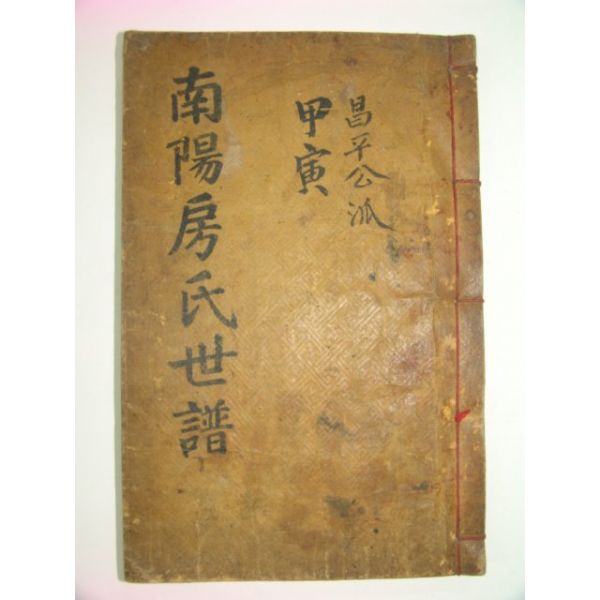 昌平公派
甲寅
南陽房氏世譜